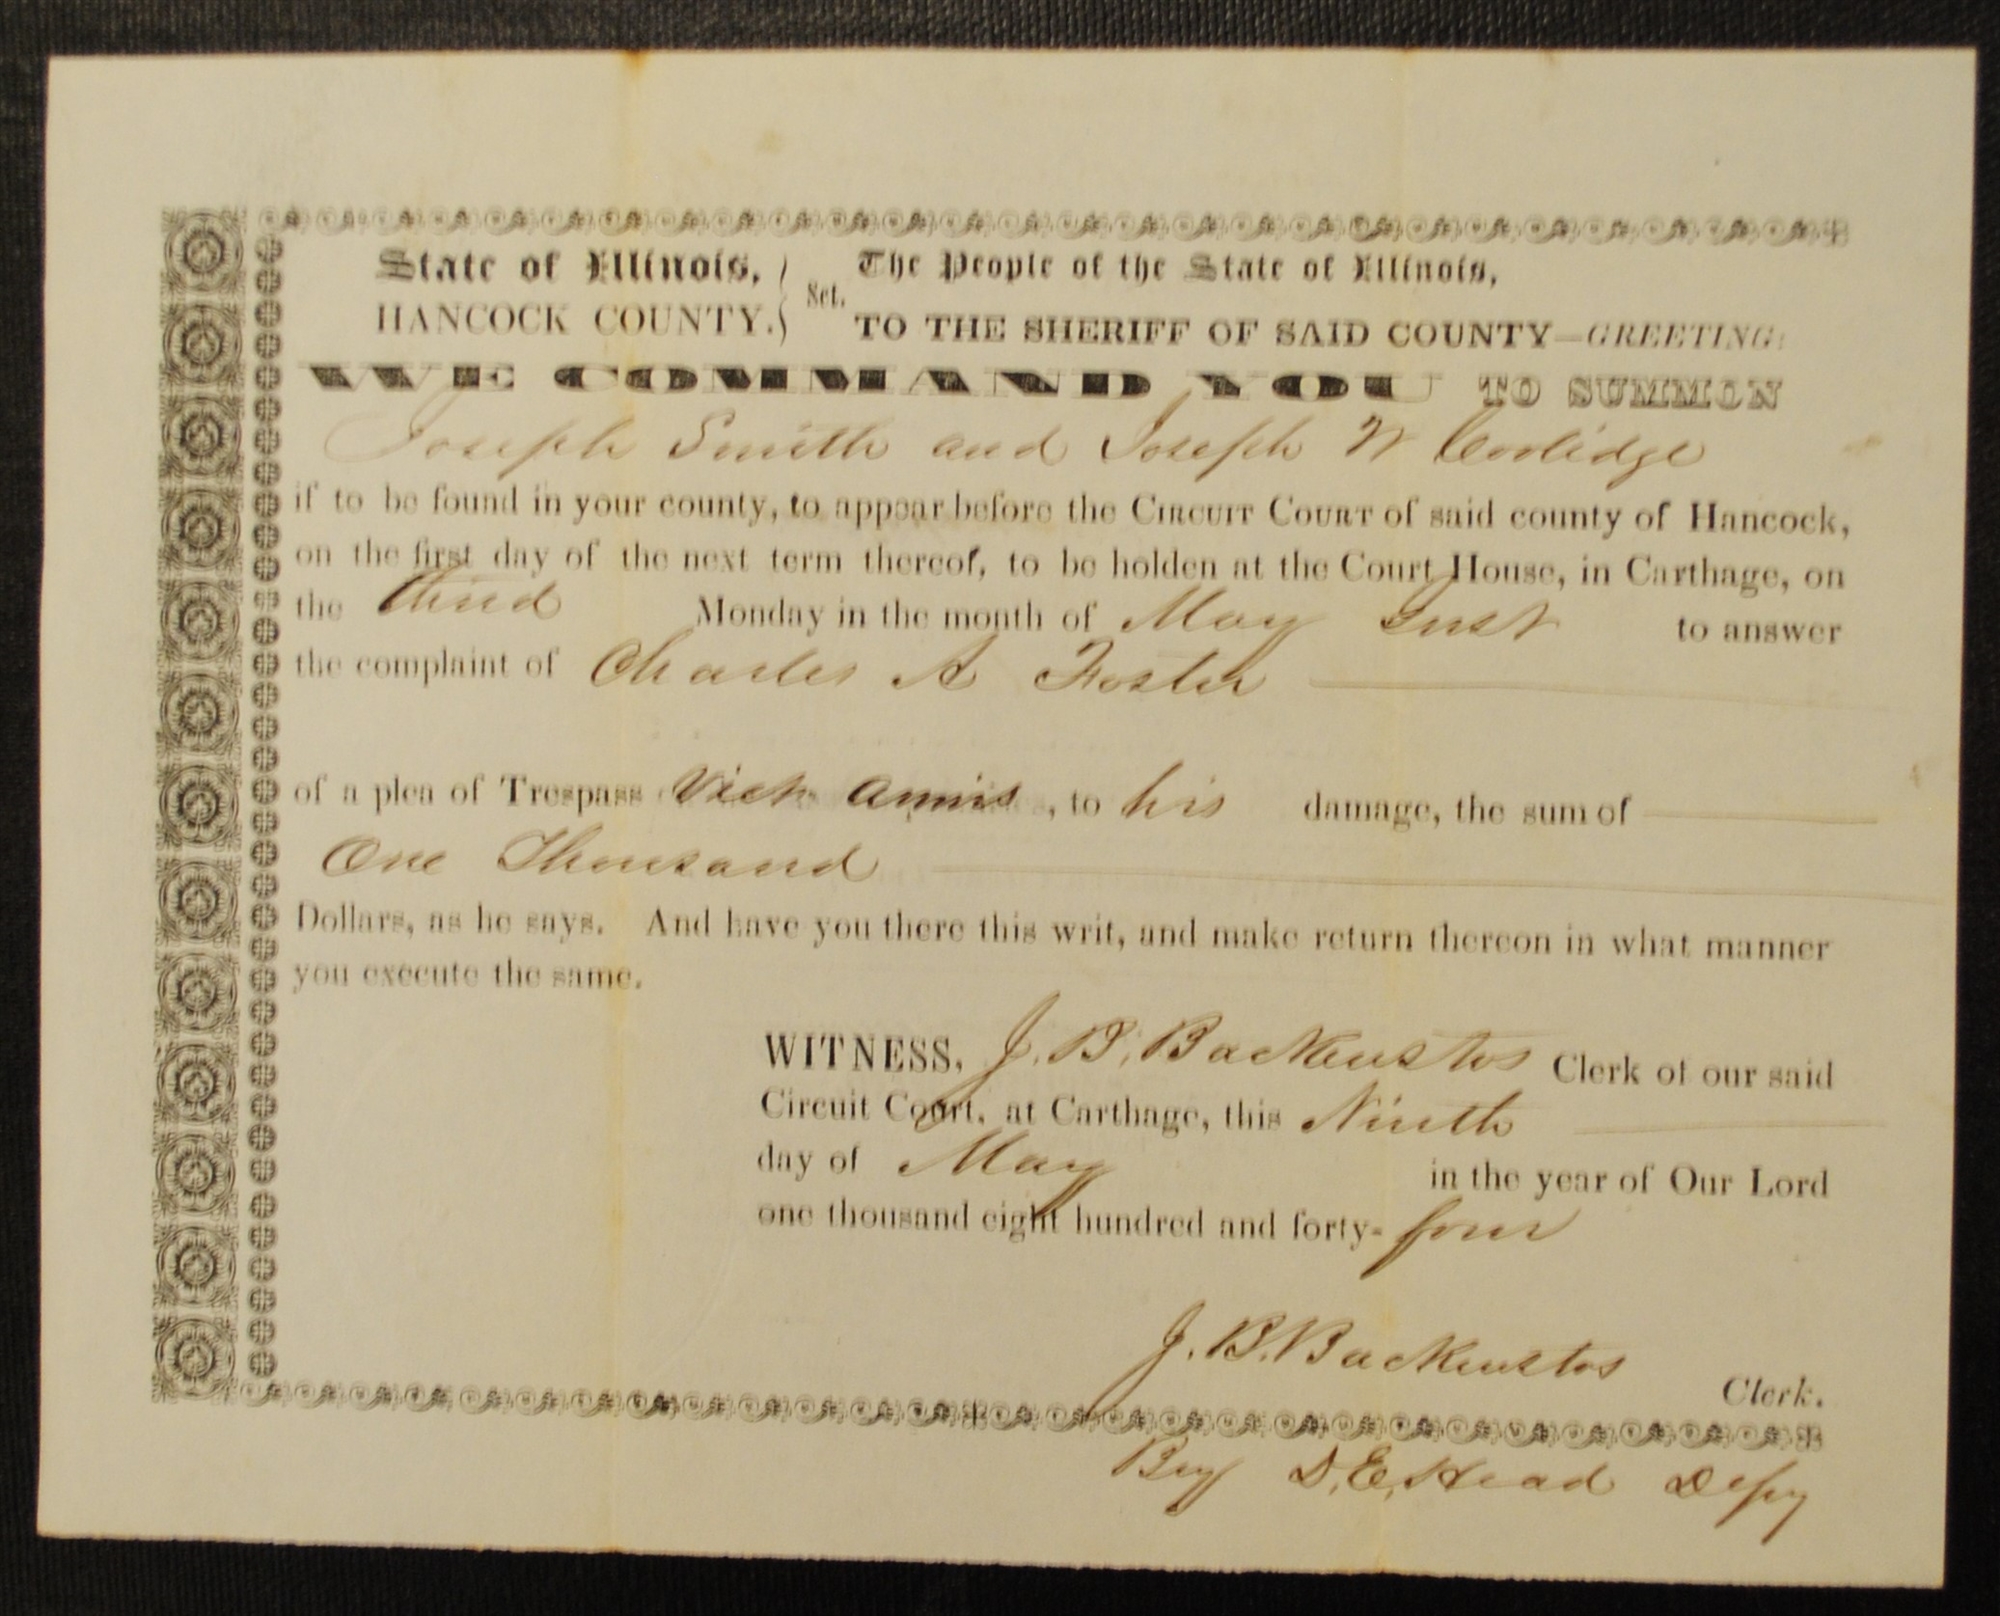 State of Illinois, The People of the State of Illinois,
HANCOCK COUNTY. Sct. TO THE SHERIFF OF SAID COUNTY—GREETING:
WE COMMAND YOU TO SUMMON
Joseph Smith and Joseph W Coolidge
if to be found in your county, to appear before the CIRCUIT COURT of said county of Hancock,
on the first day of the next term thereof, to be holden at the Court House, in Carthage, on
the third Monday in the month of May Inst to answer
the complaint of Charles A Foster
of a plea of Trespass Vict Armis, to his damage, the sum of
One Thousand
Dollars, as he says. And have you there this writ, and make return thereon in what manner
you execute the same.
WITNESS, J. B. Backenstos Clerk of our said
Circuit Court, at Carthage, this Ninth
day of May in the year of Our Lord
one thousand eight hundred and forty-four
J. B. Backenstos Clerk.
By D. E. Head Depy